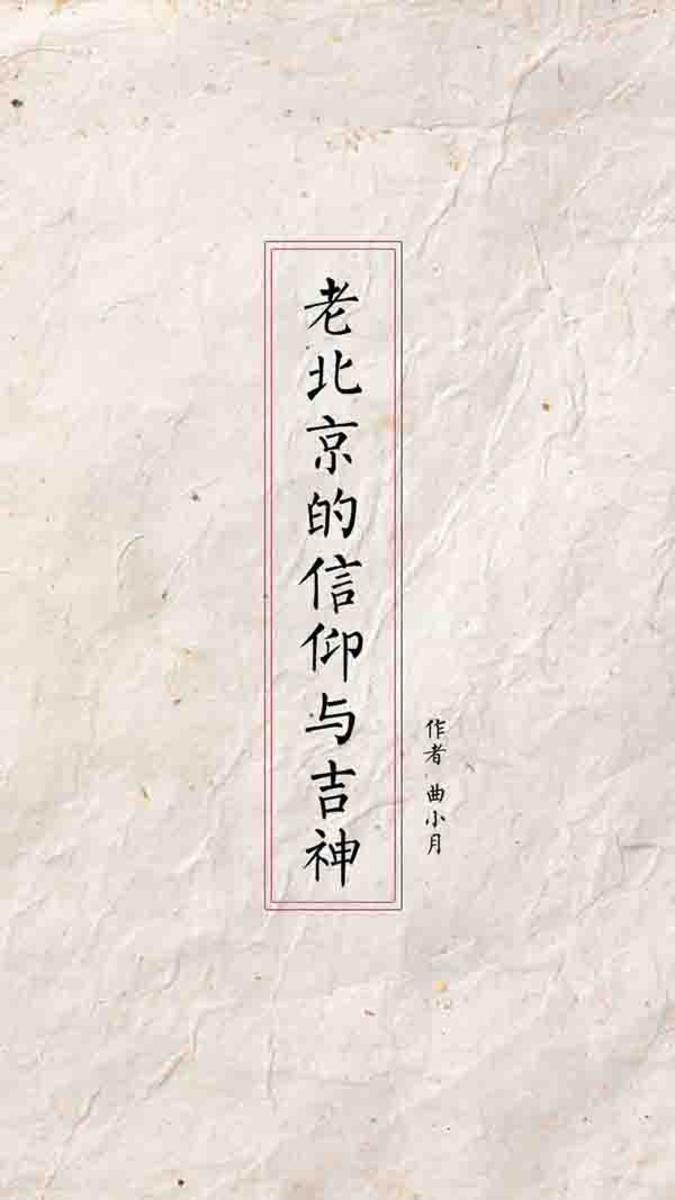 老北京的信仰与吉神
作者 曲小月